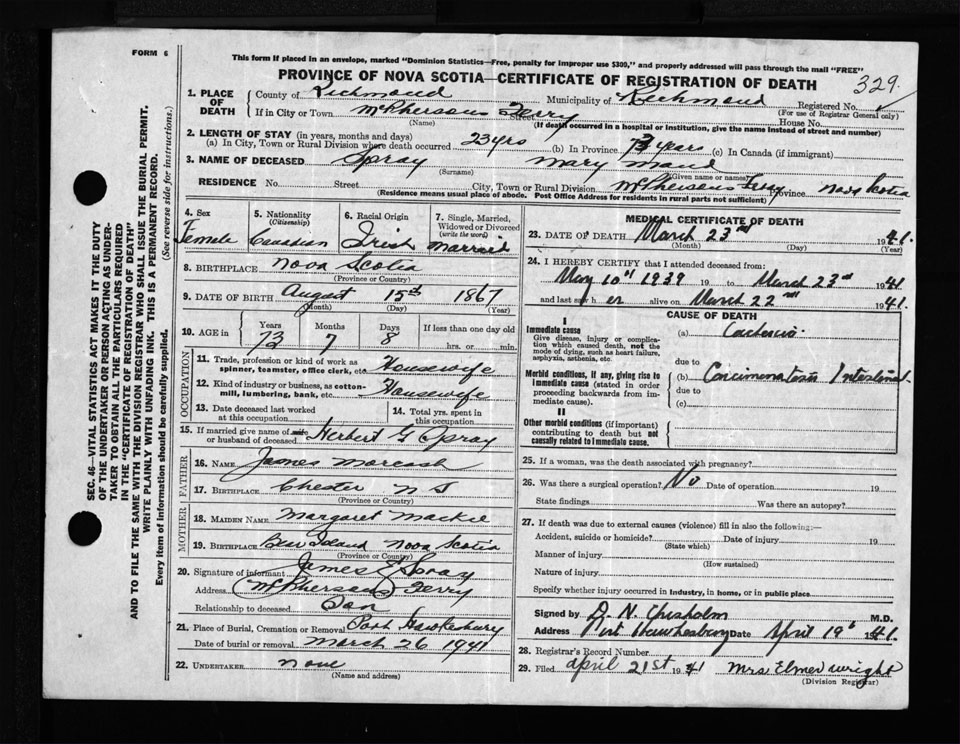 FORM 6
This form if placed in an envelope, marked "Dominion Statistics—Free, penalty for improper use $300," and properly addressed will pass through the mail "FREE"
PROVINCE OF NOVA SCOTIA—CERTIFICATE OF REGISTRATION OF DEATH
329
1. PLACE OF DEATH
County of Richmond Municipality of Richmond Registered No.
(For use of Registrar General only)
If in City or Town McPhersons Ferry Street House No.
(Name) (If death occurred in a hospital or institution, give the name instead of street and number)
2. LENGTH OF STAY (in years, months and days)
(a) In City, Town or Rural Division where death occurred 23 yrs (b) In Province 73 years (c) In Canada (if immigrant)
3. NAME OF DECEASED Spray Mary Maud
(Surname) (Given name or names)
RESIDENCE No. Street City, Town or Rural Division McPhersons Ferry Province Nova Scotia
(Residence means usual place of abode. Post Office Address for residents in rural parts not sufficient)
4. Sex 5. Nationality 6. Racial Origin 7. Single, Married, Widowed or Divorced
(Citizenship) (write the word)
Female Canadian Irish Married
8. BIRTHPLACE Nova Scotia
(Province or Country)
9. DATE OF BIRTH August 15th 1867
(Month) (Day) (Year)
10. AGE in Years Months Days If less than one day old
73 7 8 hrs. or min.
OCCUPATION
11. Trade, profession or kind of work as spinner, teamster, office clerk, etc. Housewife
12. Kind of industry or business, as cotton-mill, lumbering, bank, etc. Housewife
13. Date deceased last worked at this occupation
14. Total yrs. spent in this occupation
15. If married give name of wife or husband of deceased Herbert G Spray
FATHER
16. NAME James
17. BIRTHPLACE Chester N S
(Province or Country)
MOTHER
18. MAIDEN NAME Margaret Mackie
19. BIRTHPLACE Island Nova Scotia
(Province or Country)
20. Signature of informant James E Spray
Address McPhersons Ferry
Relationship to deceased Son
21. Place of Burial, Cremation or Removal Port Hawkesbury
Date of burial or removal March 26 1941
22. UNDERTAKER None
(Name and address)
MEDICAL CERTIFICATE OF DEATH
23. DATE OF DEATH March 23rd 1941
(Month) (Day) (Year)
24. I HEREBY CERTIFY that I attended deceased from:
May 10th 1939 19 to March 23rd 1941
and last saw her alive on March 22nd 1941.
CAUSE OF DEATH
I
Immediate cause
Give disease, injury or complication which caused death, not the mode of dying, such as heart failure, asphyxia, asthenia, etc.
(a)
due to
Morbid conditions, if any, giving rise to immediate cause (stated in order proceeding backwards from immediate cause).
(b) Intestinal
due to
(c)
II
Other morbid conditions (if important) contributing to death but not causally related to immediate cause.
25. If a woman, was the death associated with pregnancy?
26. Was there a surgical operation? No Date of operation 19
State findings Was there an autopsy?
27. If death was due to external causes (violence) fill in also the following:—
Accident, suicide or homicide? Date of injury 19
(State which)
Manner of injury
(How sustained)
Nature of injury
Specify whether injury occurred in Industry, in home, or in public place
Signed by D. N. Chisholm M.D.
Address Port Hawkesbury Date April 19th 1941.
28. Registrar's Record Number
29. Filed April 21st 1941 Mrs Elmer Wright
(Division Registrar)
SEC. 46—VITAL STATISTICS ACT MAKES IT THE DUTY
OF THE UNDERTAKER OR PERSON ACTING AS UNDER-
TAKER TO OBTAIN ALL THE PARTICULARS REQUIRED
IN THE "CERTIFICATE OF REGISTRATION OF DEATH"
AND TO FILE THE SAME WITH THE DIVISION REGISTRAR WHO SHALL ISSUE THE BURIAL PERMIT.
WRITE PLAINLY WITH UNFADING INK. THIS IS A PERMANENT RECORD.
Every item of information should be carefully supplied. (See reverse side for instructions.)